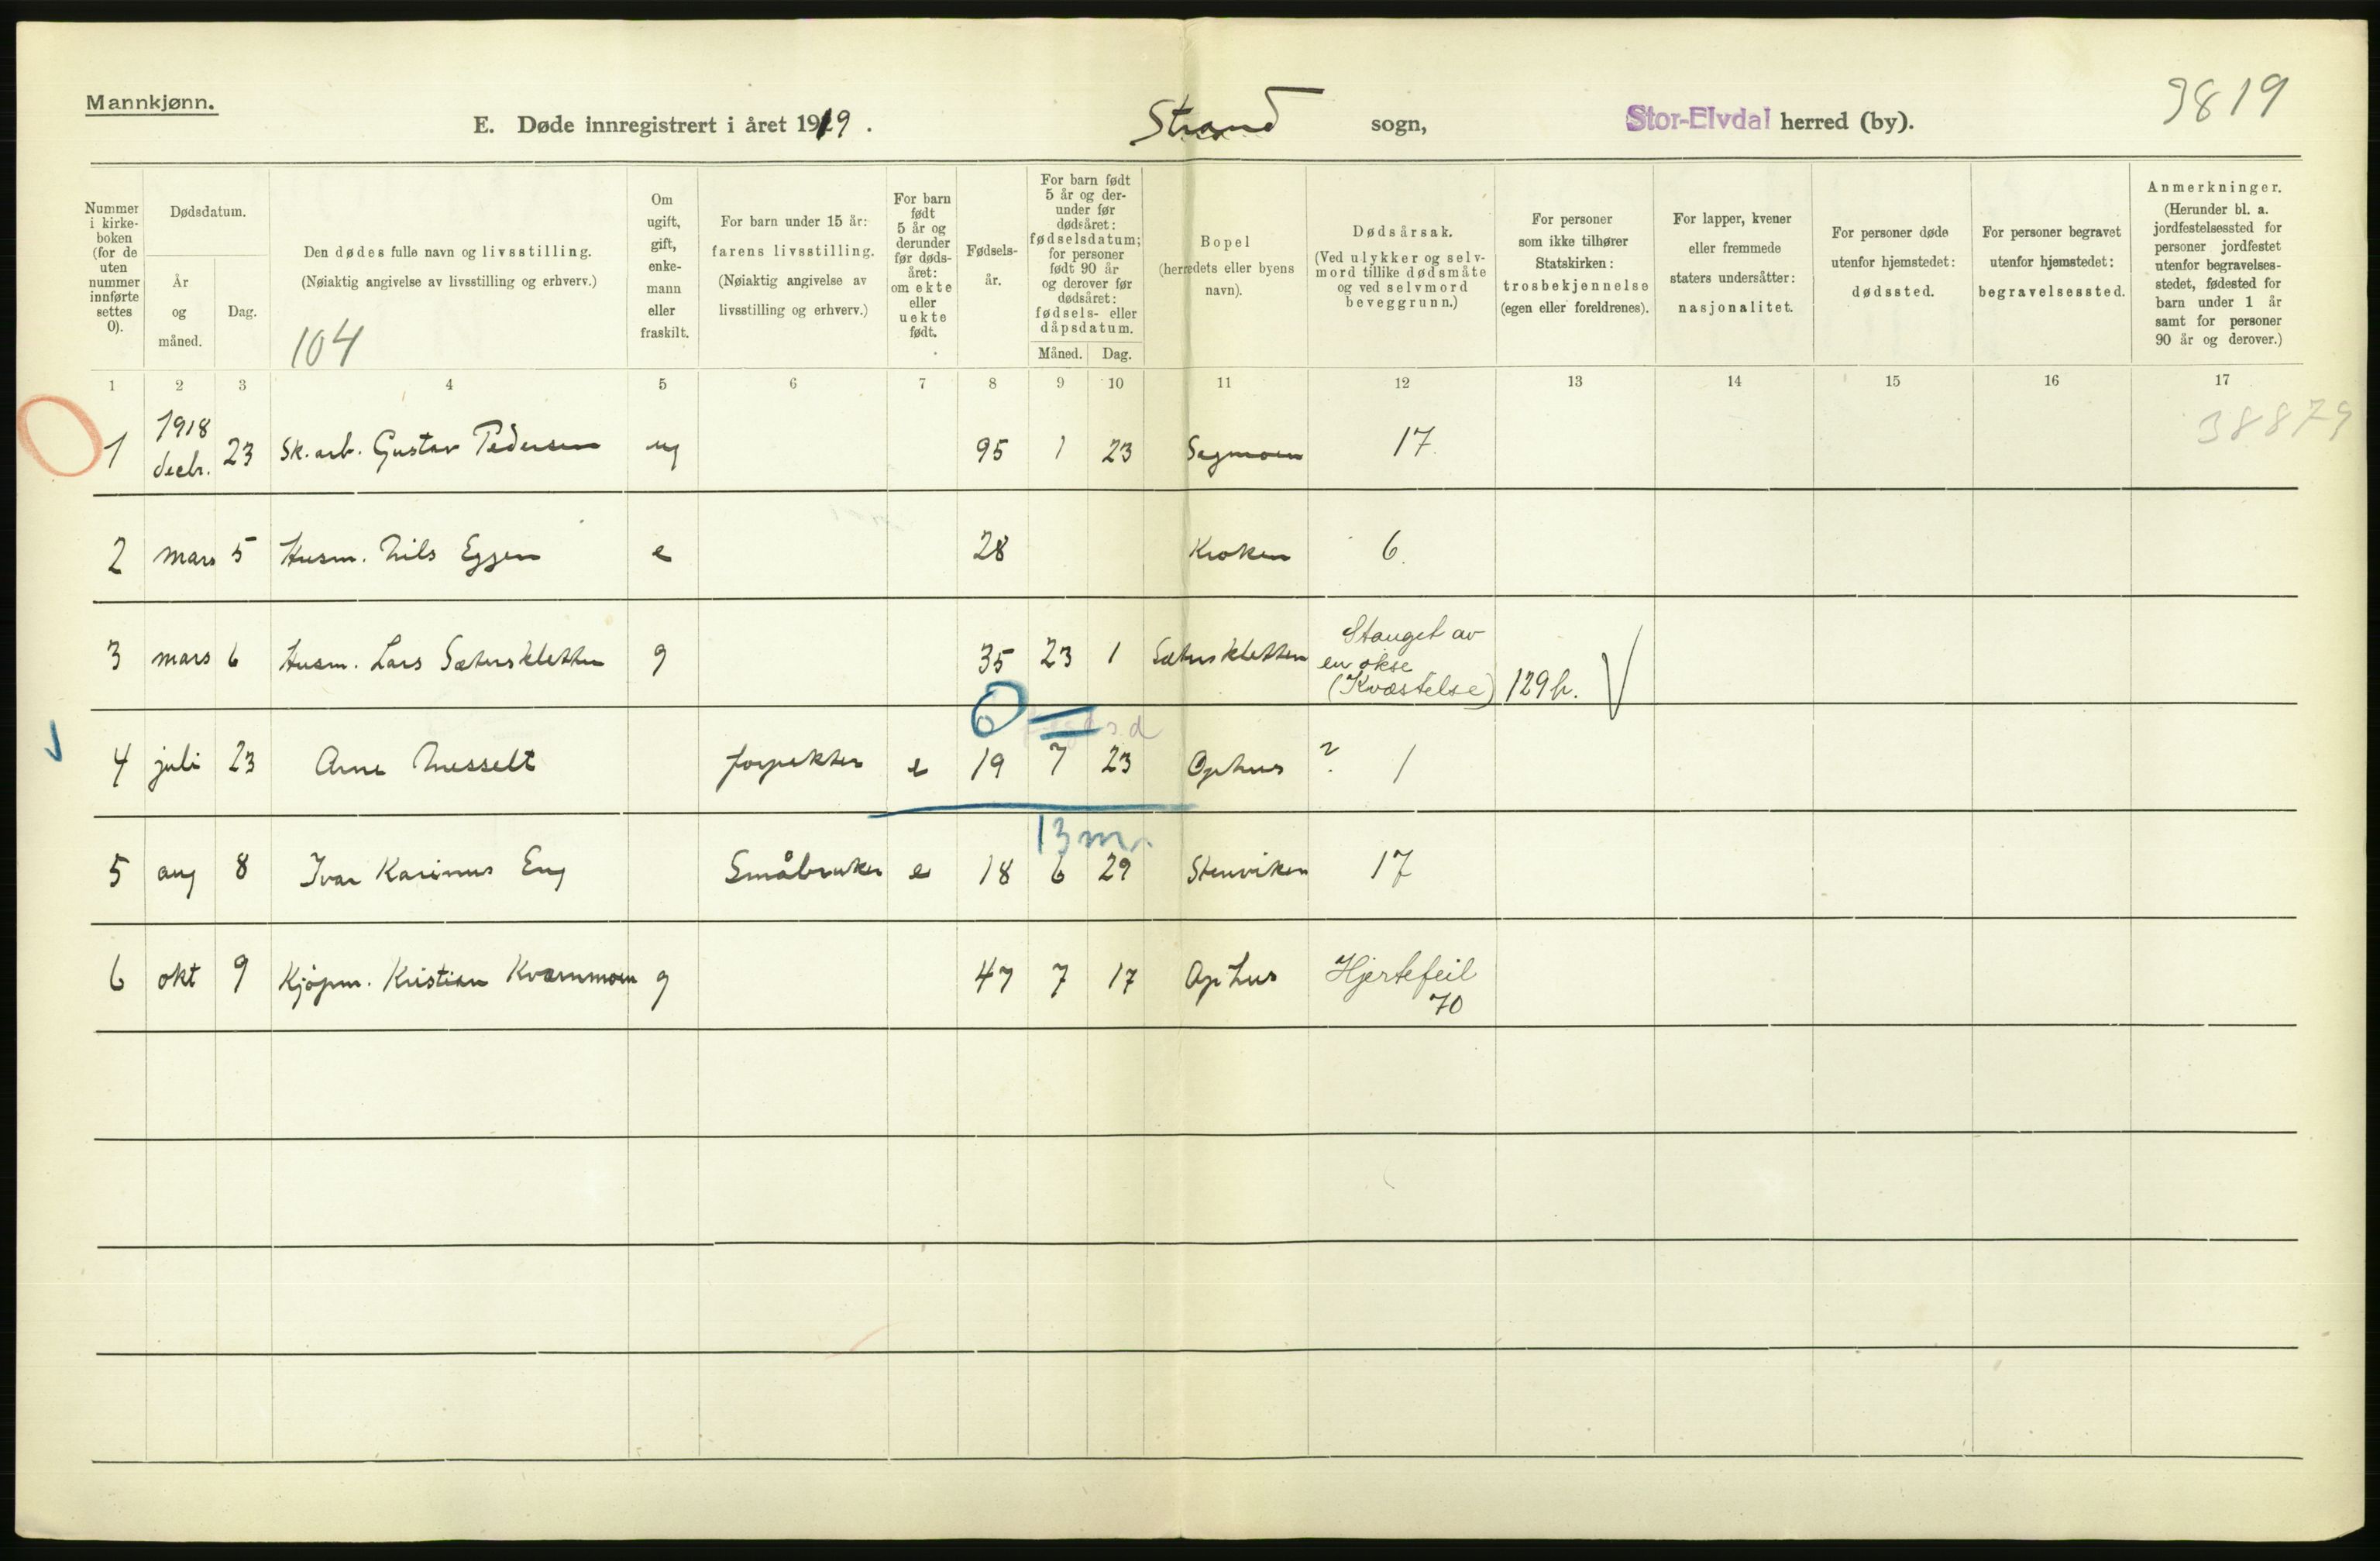 Mannkjønn.
E. Døde innregistrert i året 1919.
Strand sogn,
Stor-Elvdal herred (by).
3819
Nummer i kirke-boken (for de uten nummer innførte settes 0).
Dødsdatum.
År og måned.
Dag.
Den dødes fulle navn og livsstilling.
(Nøiaktig angivelse av livsstilling og erhverv.)
104
Om ugift, gift, enke-mann eller fraskilt.
For barn under 15 år:
farens livsstilling.
(Nøiaktig angivelse av livsstilling og erhverv.)
For barn født 5 år og derunder før døds-året: om ekte eller uekte født.
Fødsels-år.
For barn født 5 år og der-under før dødsåret: fødselsdatum; for personer født 90 år og derover før dødsåret: fødsels- eller dåpsdatum.
Måned. Dag.
Bopel
(herredets eller byens navn).
Dødsårsak.
(Ved ulykker og selv-mord tillike dødsmåte og ved selvmord beveggrunn.)
For personer som ikke tilhører Statskirken: trosbekjennelse (egen eller foreldrenes).
For lapper, kvener eller fremmede staters undersåtter: nasjonalitet.
For personer døde utenfor hjemstedet: dødssted.
For personer begravet utenfor hjemstedet: begravelsessted.
Anmerkninger.
(Herunder bl. a. jordfestelsessted for personer jordfestet utenfor begravelses-stedet, fødested for barn under 1 år samt for personer 90 år og derover.)
1 2 3 4 5 6 7 8 9 10 11 12 13 14 15 16 17
38879
1 1918 decbr. 23 Sk. arb. Gustav Pedersen ug 95 1 23 Sagmoen 17.
2 mars 5 Husm. Nils Eggen e 28 Kroken 6.
3 mars 6 Husm. Lars Sæterskletten g 35 23 1 Sæterskletten Stanget av en okse (Kvæstelse) 129 h. V
0
4 juli 23 Arne Messelt forpakter e 19 7 23 Ophus ? 1
13 m.
5 aug 8 Ivar Karinus Eng Småbruker e 18 6 29 Stenviken 17
6 okt 9 Kjøpm. Kristian Kværnmoen g 47 7 17 Ophus Hjertefeil 70